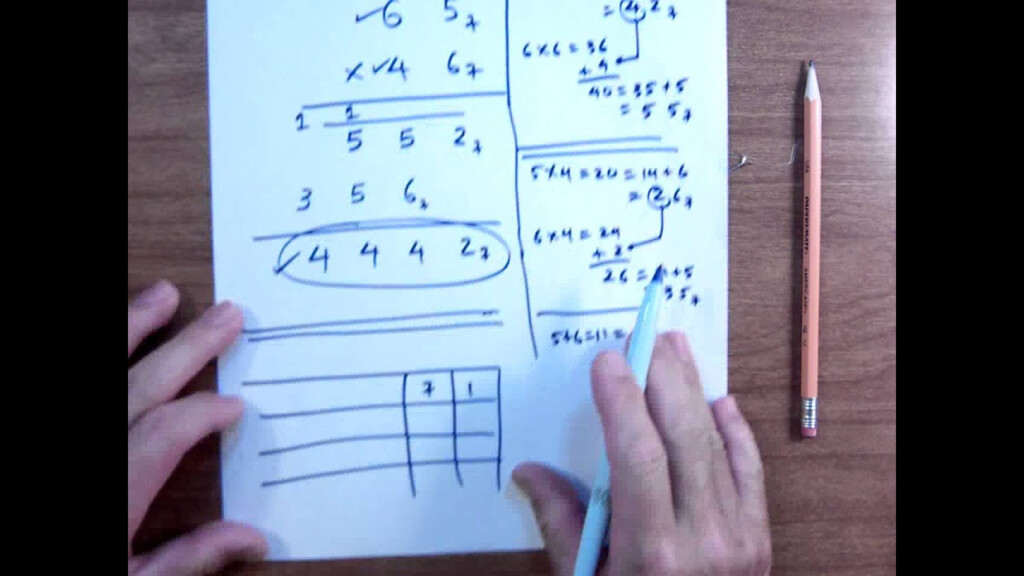 ✓6 5₇
× ✓4 6₇
1 1
5 5 2₇
3 5 6₇
✓4 4 4 2₇
7 1
= 4 2₇
6 × 6 = 36
+ 4
40 = 35 + 5
= 5 5₇
5 × 4 = 20 = 14 + 6
= 2 6₇
6 × 4 = 24
+ 2
26 = + 5
3 5₇
5 + 6 = 11 =